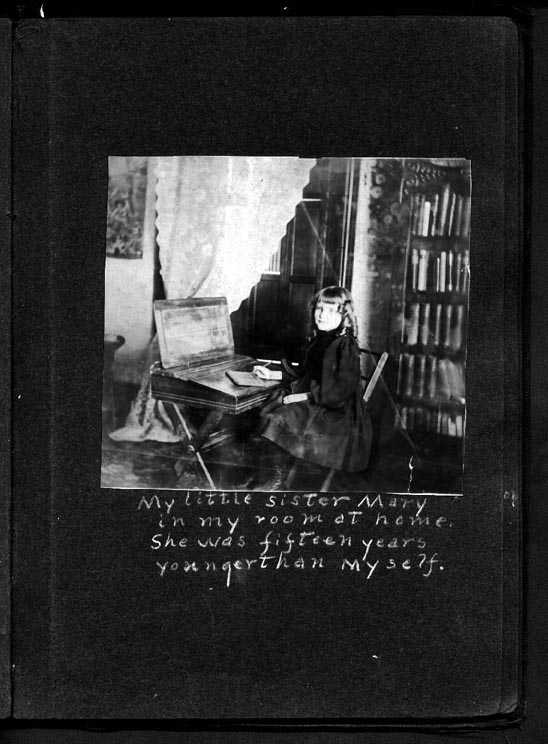 My little sister Mary
in my room at home.
She was fifteen years
younger than myself.